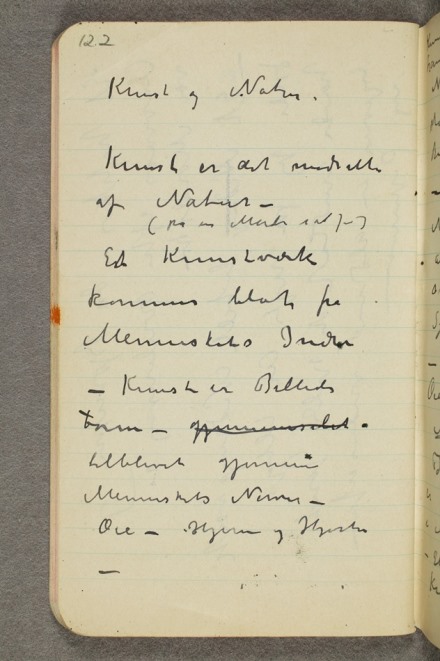 122
Kunst og Natur.
Kunst er det modsatte
af Natur –
Et Kunstværk
kommer blot fra
Menneskets Indre
– Kunst er Billeds
Form –
tilblivet gjennem
Menneskets Nerver –
Øie – Hjerne og Hjerte
–